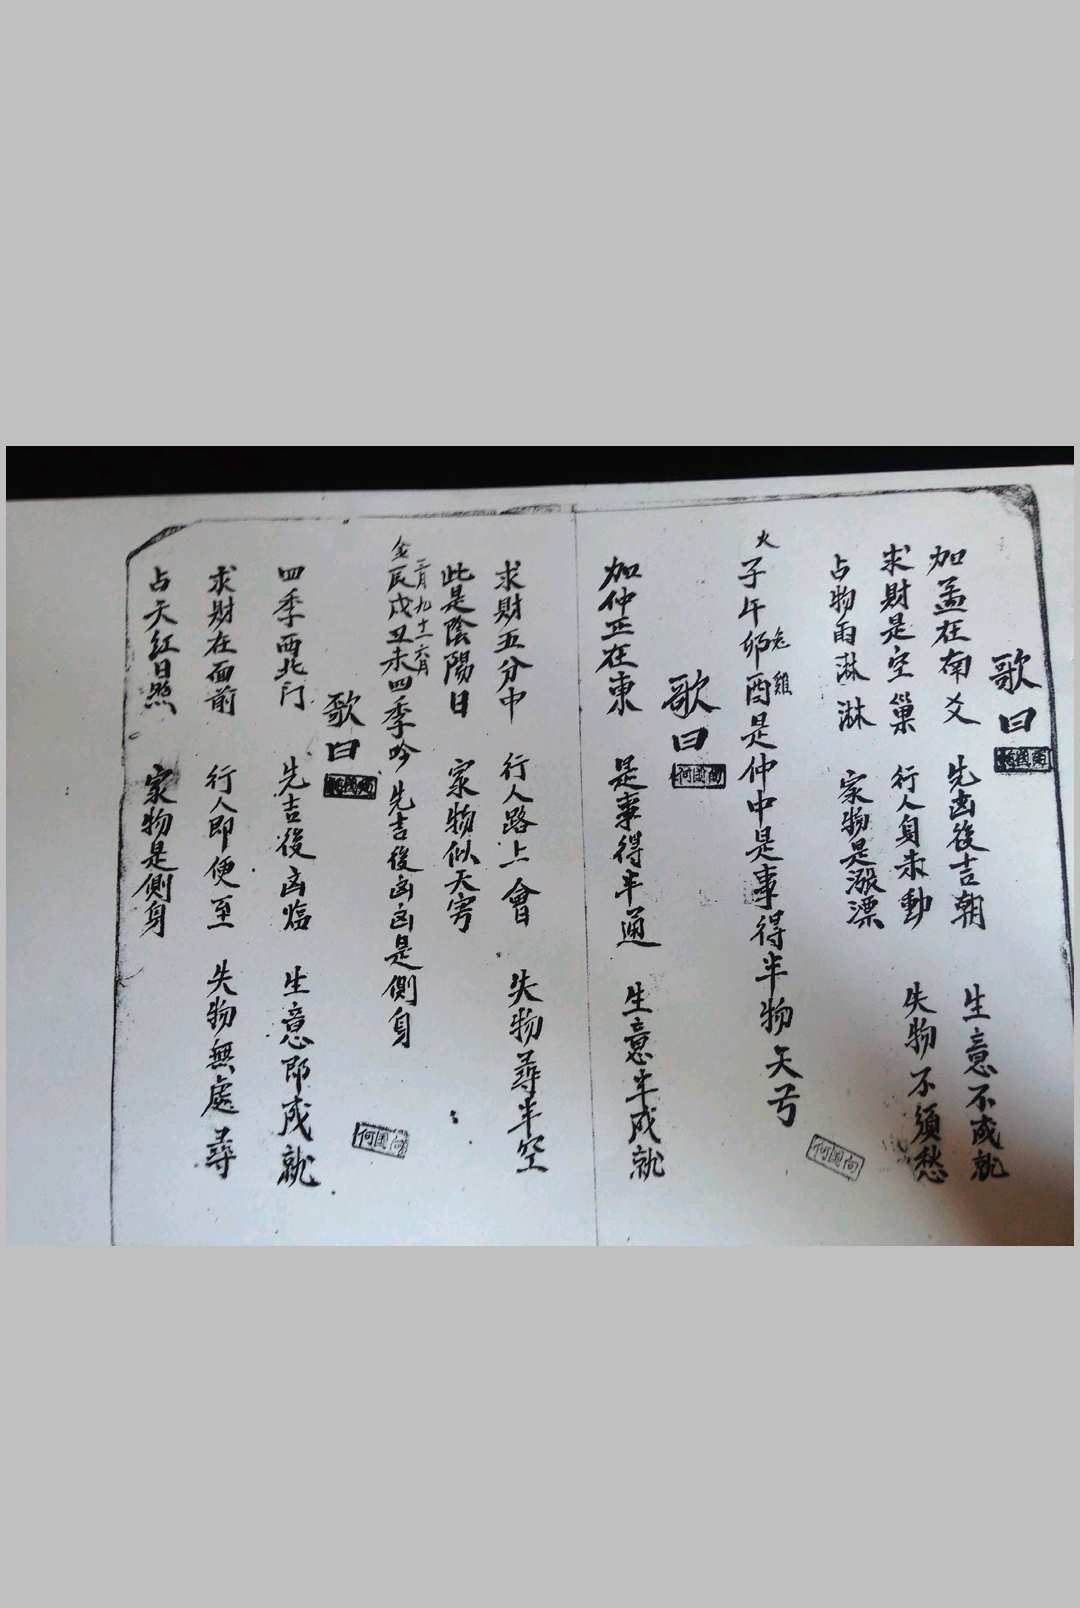 歌曰
何國向
加孟在南爻 先凶後吉朝 生意不成就
求財是空巢 行人身未動 失物不須愁
占物雨淋淋 家物是漲漂
何国向
火子午卯酉是仲中是事得半物天芎
兔 雞
歌曰
何國向
加仲正在東 是事得半通 生意半成就
求財五分中 行人路上會 失物尋半空
此是陰陽日 家物似天穹
三月九十二六月
金辰戌丑未四季吟 先吉後凶凶是側身
何国向
歌曰
何國向
四季西北门 先吉後凶临 生意即成就
求財在面前 行人即便至 失物無處尋
占天红日照 家物是側身